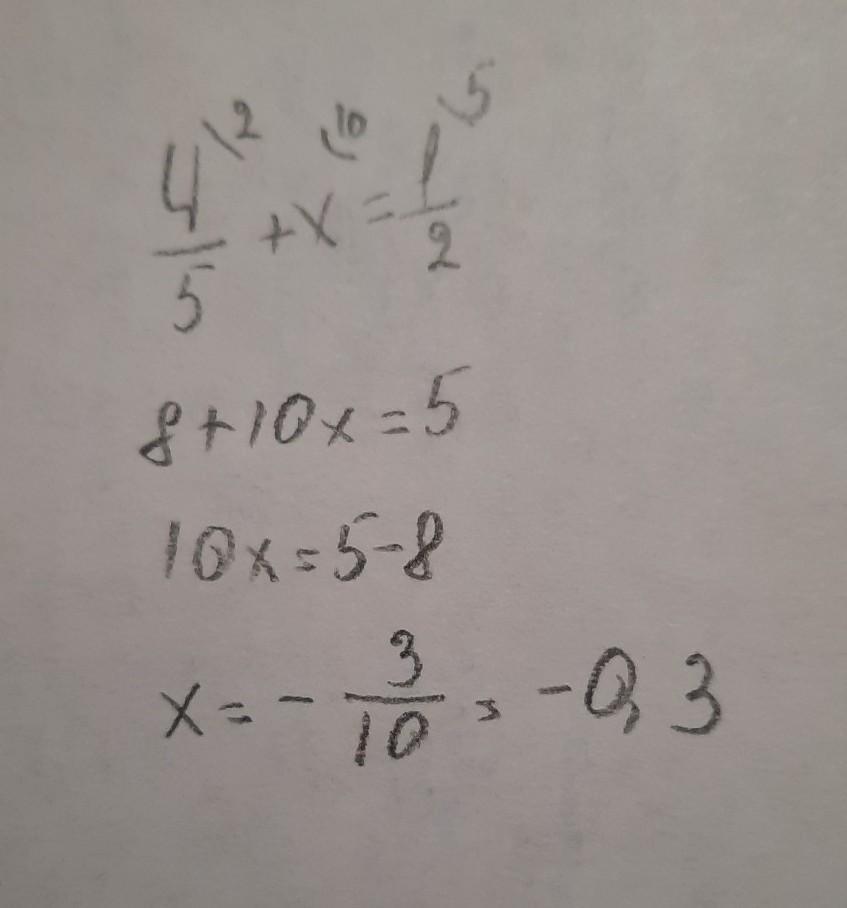 4/5 \2 + x \10 = 1/2 \5
8+10x=5
10x=5-8
x = - 3/10 = -0,3